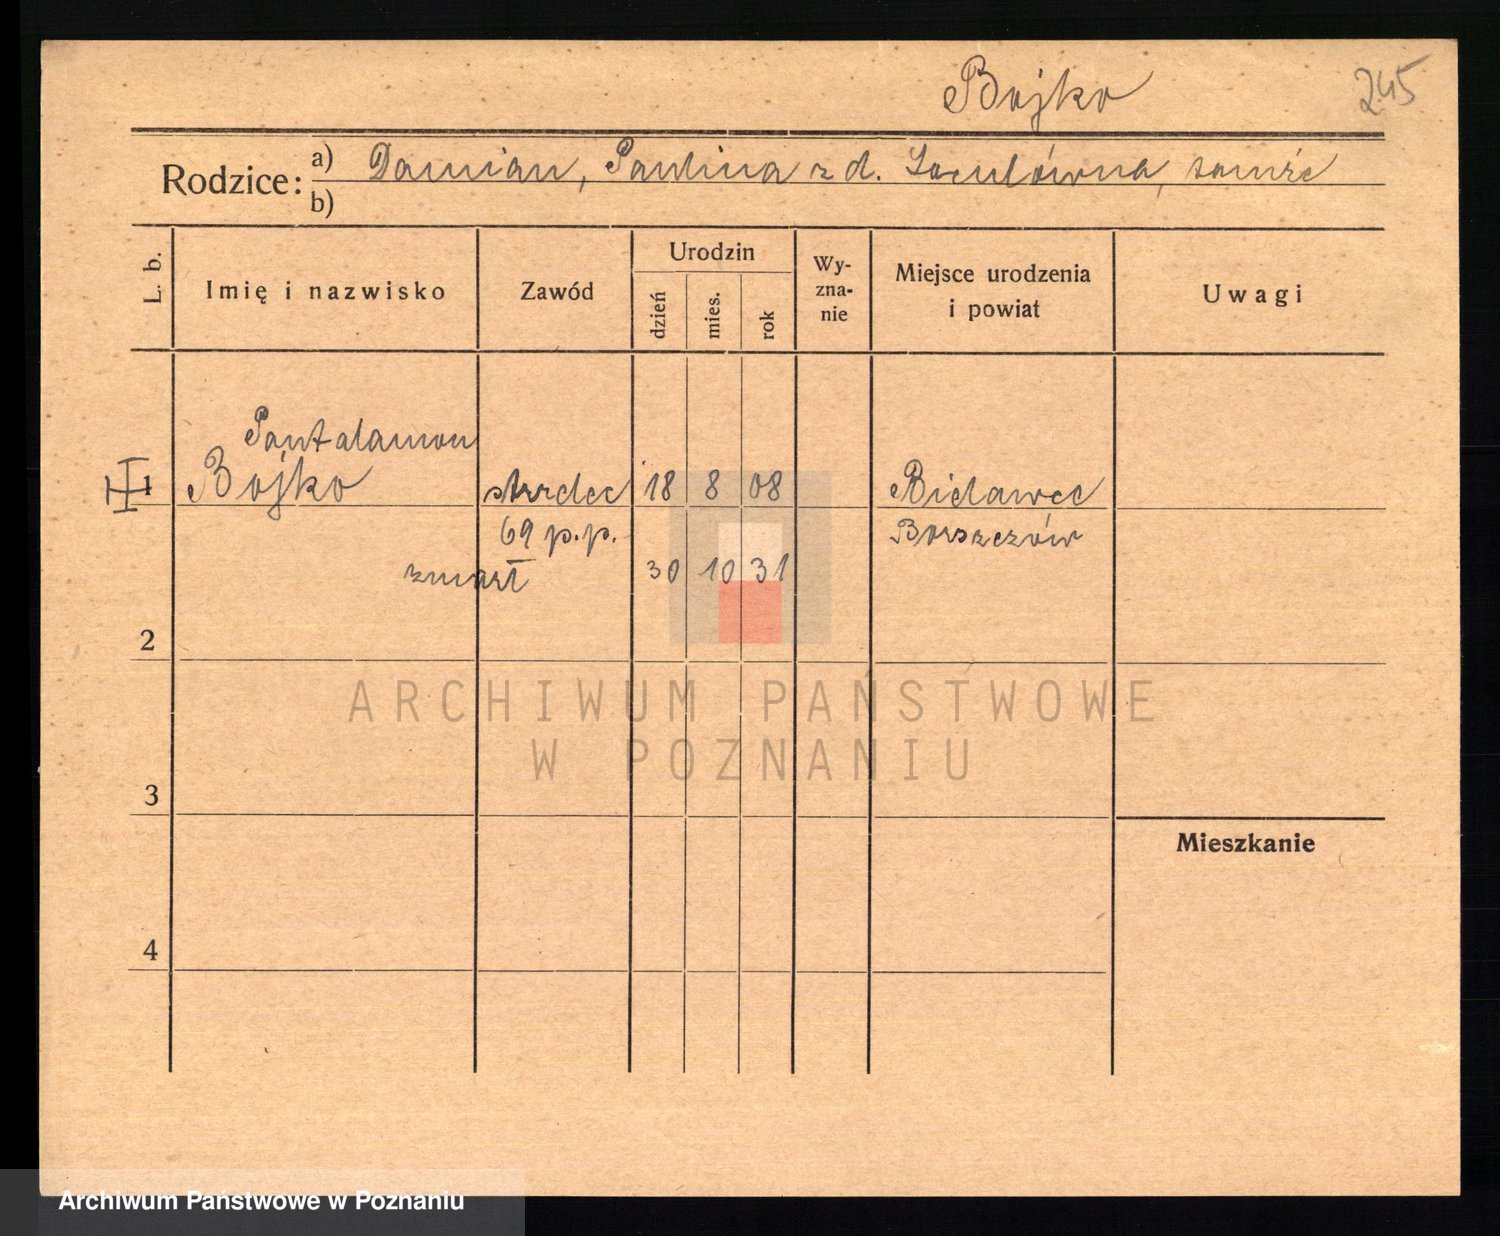 Bojko 245
Rodzice: a) Damian, Paulina z d.
b)
L. b. Imię i nazwisko Zawód Urodzin dzień mies. rok Wy-zna-nie Miejsce urodzenia i powiat Uwagi
Pantalamon
1 Bojko strzelec 18 8 08 Bielawce
69 p.p. Borszczów
zmarł 30 10 31
2
3
Mieszkanie
4
ARCHIWUM PAŃSTWOWE
W POZNANIU
Archiwum Państwowe w Poznaniu